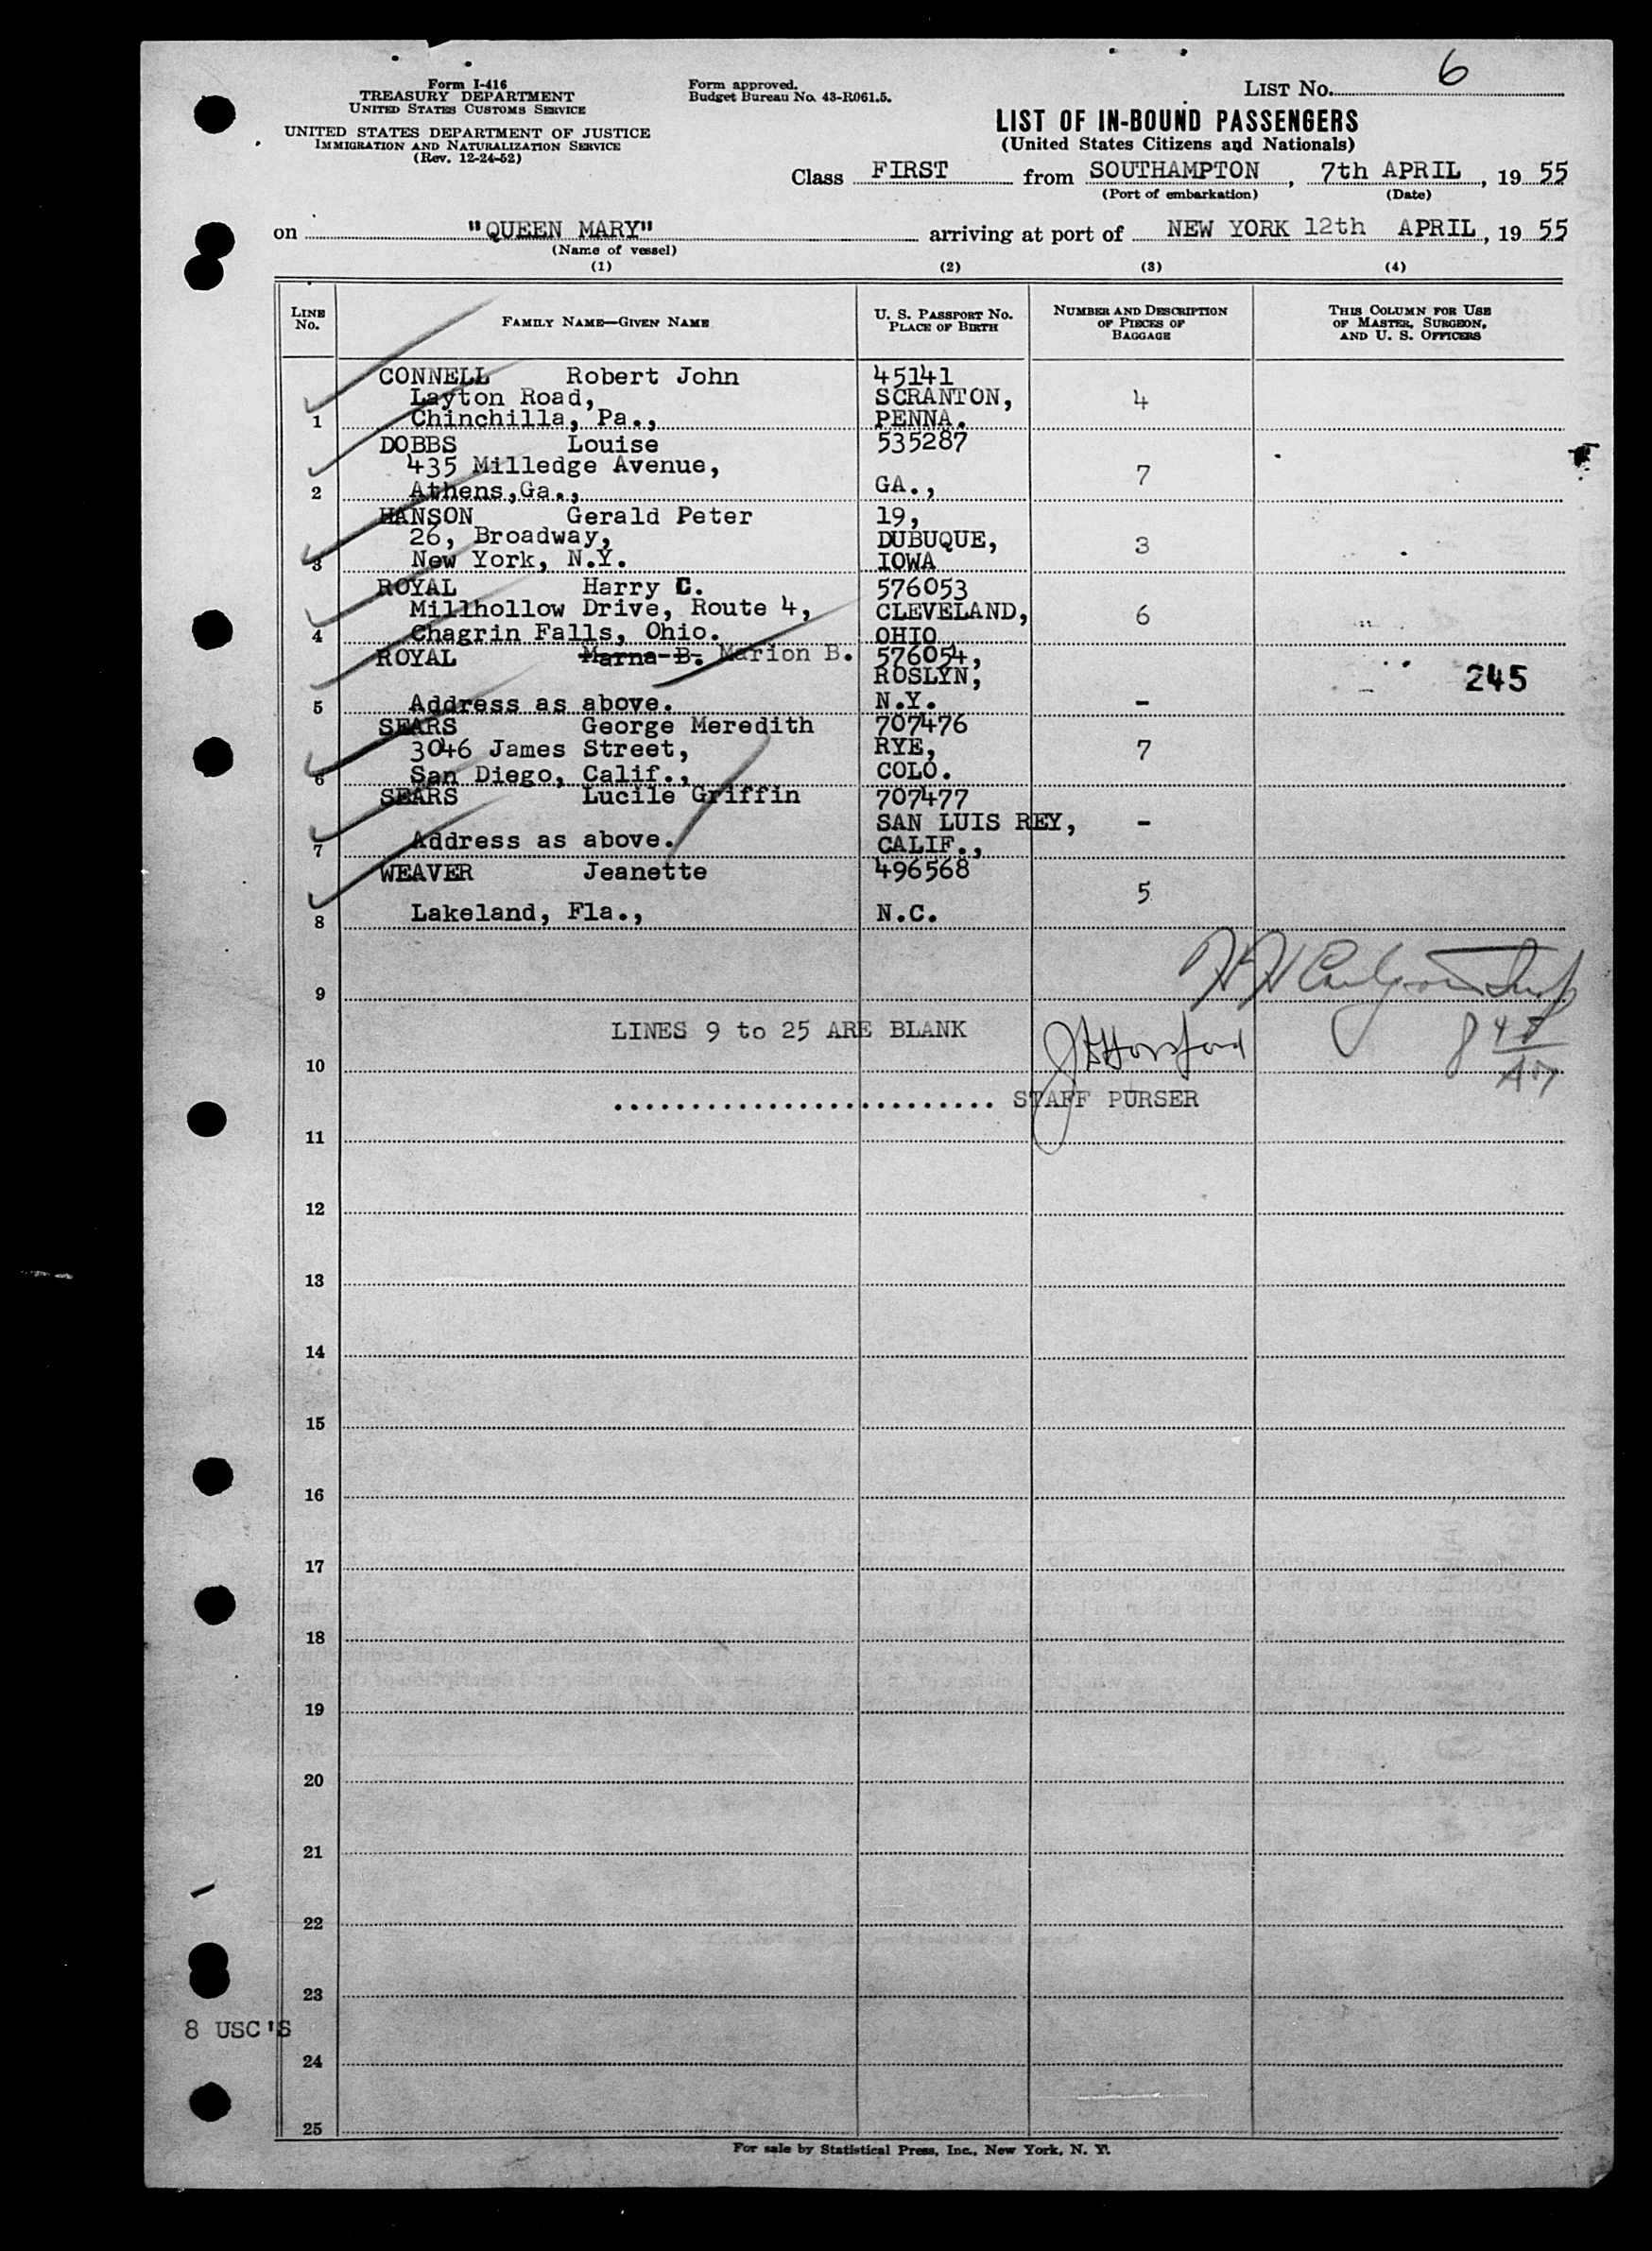 Form I-416
TREASURY DEPARTMENT
UNITED STATES CUSTOMS SERVICE
UNITED STATES DEPARTMENT OF JUSTICE
IMMIGRATION AND NATURALIZATION SERVICE
(Rev. 12-24-52)
Form approved.
Budget Bureau No. 43-R061.5.
LIST No. 6
LIST OF IN-BOUND PASSENGERS
(United States Citizens and Nationals)
Class FIRST from SOUTHAMPTON, 7th APRIL, 1955
(Port of embarkation) (Date)
on "QUEEN MARY" arriving at port of NEW YORK 12th APRIL, 1955
(Name of vessel)
(1) (2) (3) (4)
LINE No. FAMILY NAME—GIVEN NAME U. S. PASSPORT No. PLACE OF BIRTH NUMBER AND DESCRIPTION OF PIECES OF BAGGAGE THIS COLUMN FOR USE OF MASTER, SURGEON, AND U. S. OFFICERS
CONNELL Robert John 45141
Layton Road, SCRANTON, 4
1 Chinchilla, Pa., PENNA.
DOBBS Louise 535287
435 Milledge Avenue, 7
2 Athens,Ga., GA.,
HANSON Gerald Peter 19,
26, Broadway, DUBUQUE, 3
3 New York, N.Y. IOWA
ROYAL Harry C. 576053
Millhollow Drive, Route 4, CLEVELAND, 6
4 Chagrin Falls, Ohio. OHIO
ROYAL Marna B. Marion B. 576054,
ROSLYN, 245
5 Address as above. N.Y. -
SEARS George Meredith 707476
3046 James Street, RYE, 7
6 San Diego, Calif., COLO.
SEARS Lucile Griffin 707477
SAN LUIS REY, -
7 Address as above. CALIF.,
WEAVER Jeanette 496568
5
8 Lakeland, Fla., N.C.
9
LINES 9 to 25 ARE BLANK
10
.......................... STAFF PURSER
11
12
13
14
15
16
17
18
19
20
21
22
23
8 USC'S
24
25
For sale by Statistical Press, Inc., New York, N. Y.